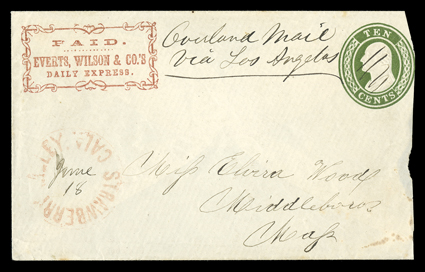 PAID.
EVERTS, WILSON & CO.'S
DAILY EXPRESS.
Overland Mail
Via Los Angelos
TEN
CENTS
STRAWBERRY VALLEY
CAL.
June
18
Miss Elvira Wood
Middleboro
Mass